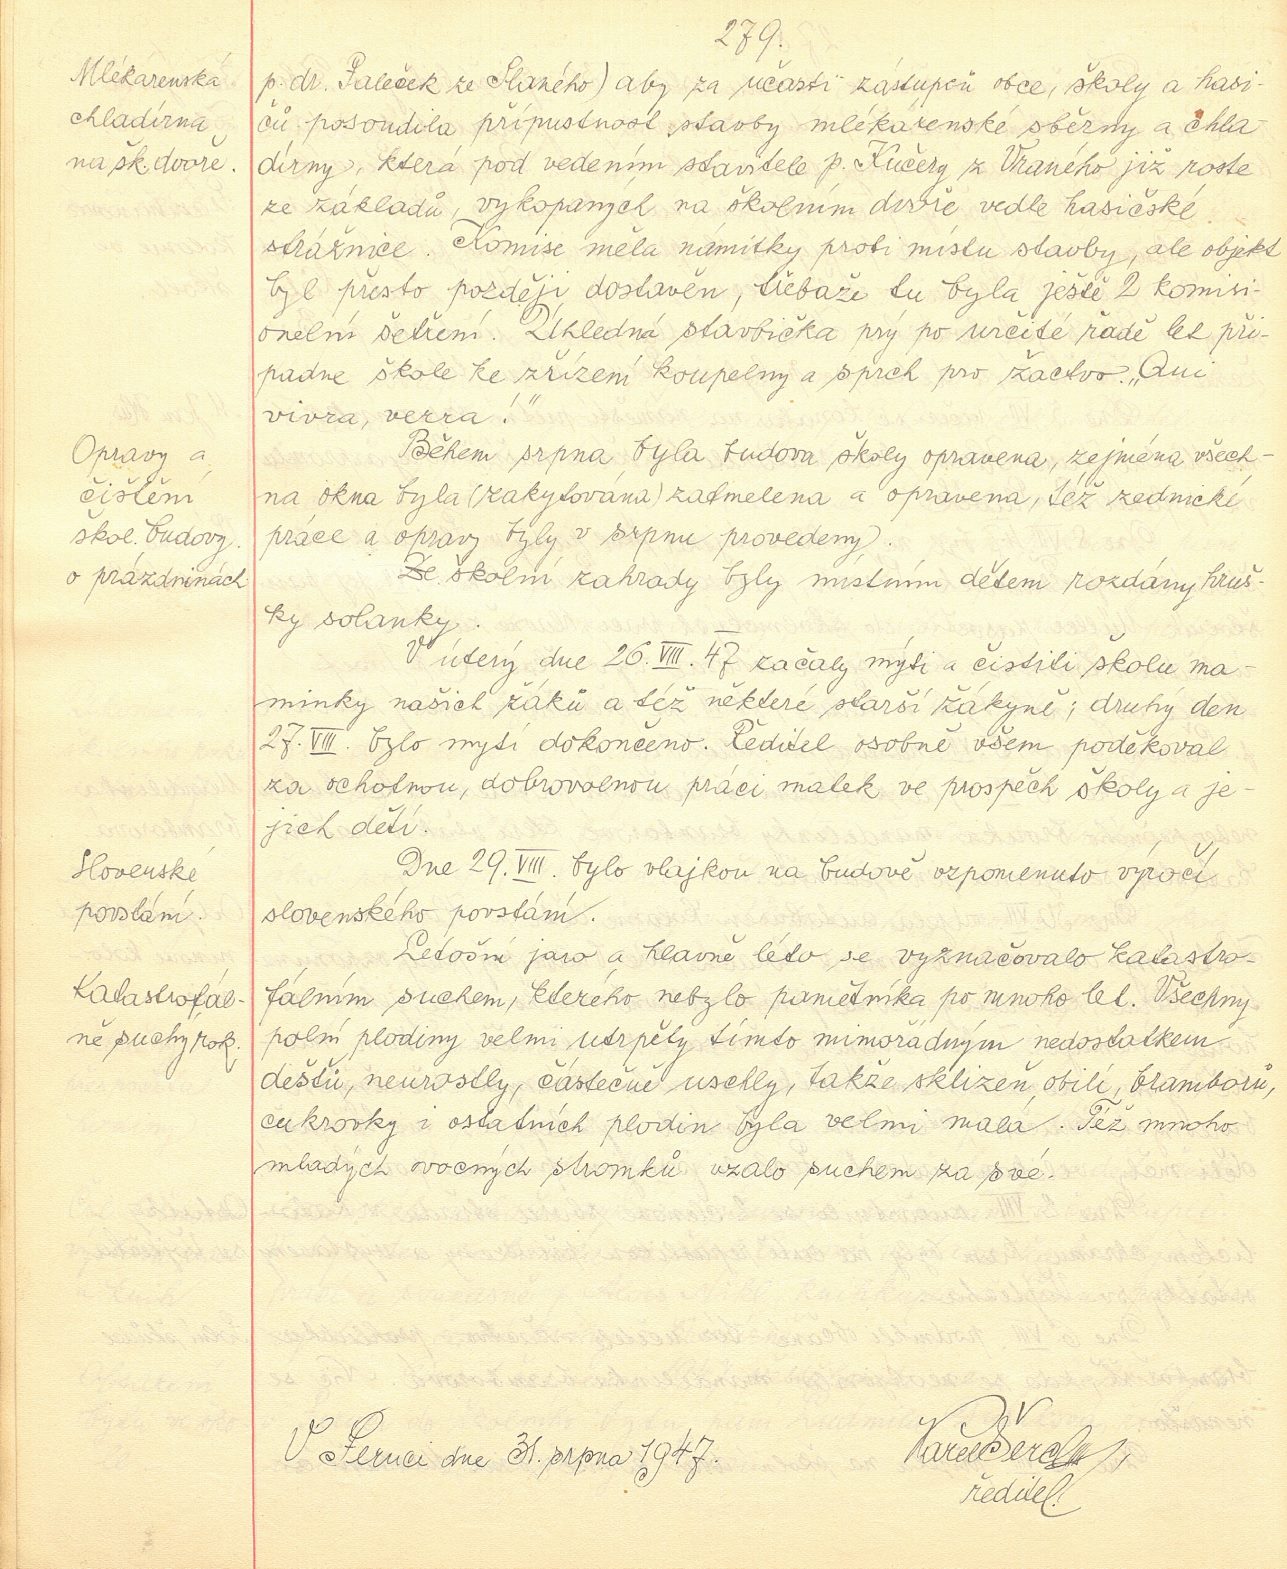 279.
Mlékárenská
chladírna
na šk. dvoře.
p. dr. Paleček ze Slaného) aby za účasti zástupců obce, školy a hasi-
čů posoudila přípustnost stavby mlékárenské sběrny a chla
dírny, která pod vedením stavitele p. Kučery z Vraného již roste
ze základů, vykopaných na školním dvoře vedle hasičské
strážnice. Komise měla námitky proti místu stavby, ale objekt
byl přesto později dostavěn, třebaže tu byla ještě 2 komisi-
onelní šetření. Úhledná stavbička prý po určité řadě let při-
padne škole ke zřízení koupelny a sprch pro žactvo. „Qui
vivra, verra!"
Opravy a
čištění
škol. budovy
o prázdninách
Během srpna byla budova školy opravena, zejména všech-
na okna byla (zakytována) zatmelena a opravena, též zednické
práce a opravy byly v srpnu provedeny.
Ze školní zahrady byly místním dětem rozdány hruš-
ky solanky.
V úterý dne 26. VIII. 47 začaly mýti a čistiti školu ma-
minky našich žáků a též některé starší žákyně; druhý den
27. VIII. bylo mytí dokončeno. Ředitel osobně všem poděkoval
za ochotnou, dobrovolnou práci matek ve prospěch školy a je-
jich dětí.
Slovenské
povstání.
Dne 29. VIII. bylo vlajkou na budově vzpomenuto výročí
slovenského povstání.
Katastrofál-
ně suchý rok.
Letošní jaro a hlavně léto se vyznačovalo katastro-
fálním suchem, kterého nebylo pamětníka po mnoho let. Všechny
polní plodiny velmi utrpěly tímto mimořádným nedostatkem
deštů, neurostly, částečně uschly, takže sklizeň obilí, bramborů,
cukrovky i ostatních plodin byla velmi malá. Též mnoho
mladých ovocných stromků vzalo suchem za své.
V Peruci dne 31. srpna 1947.
Karel
ředitel.